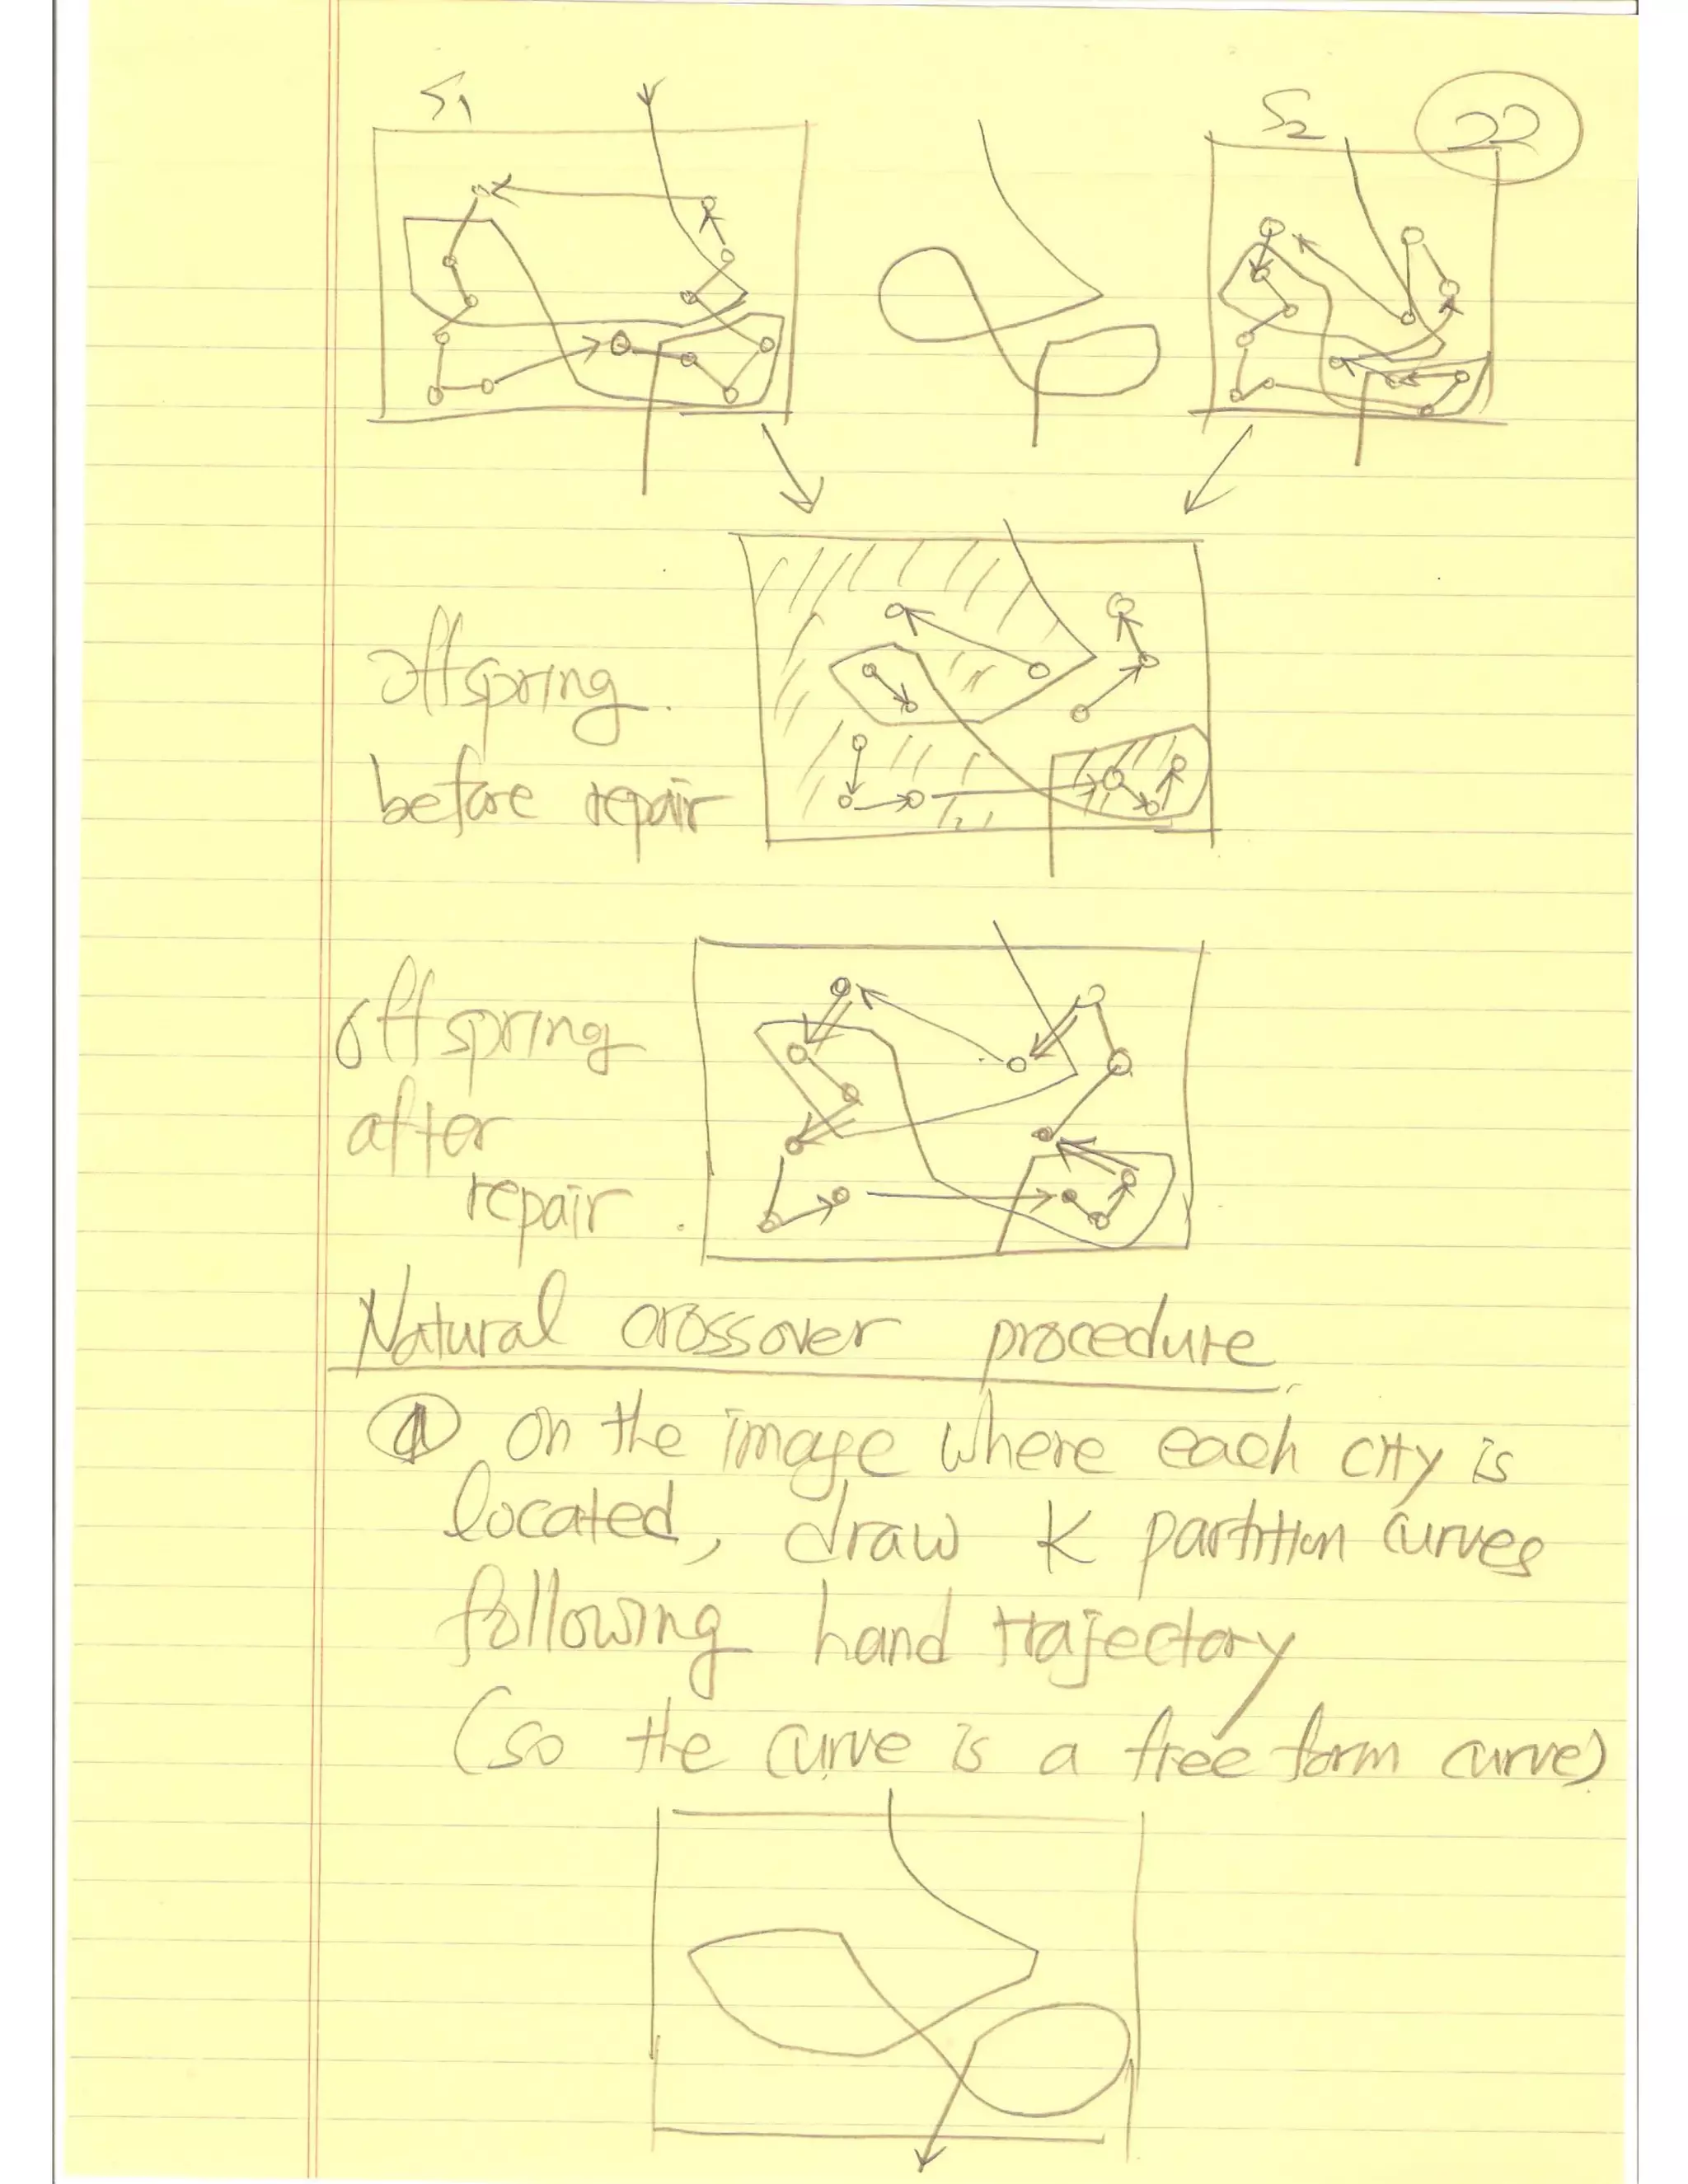 S1
S2
22
offspring.
before repair
offspring
after
repair.
Natural crossover procedure
① on the image where each city is
located, draw K partition curves
following hand trajectory
(so the curve is a free form curve)